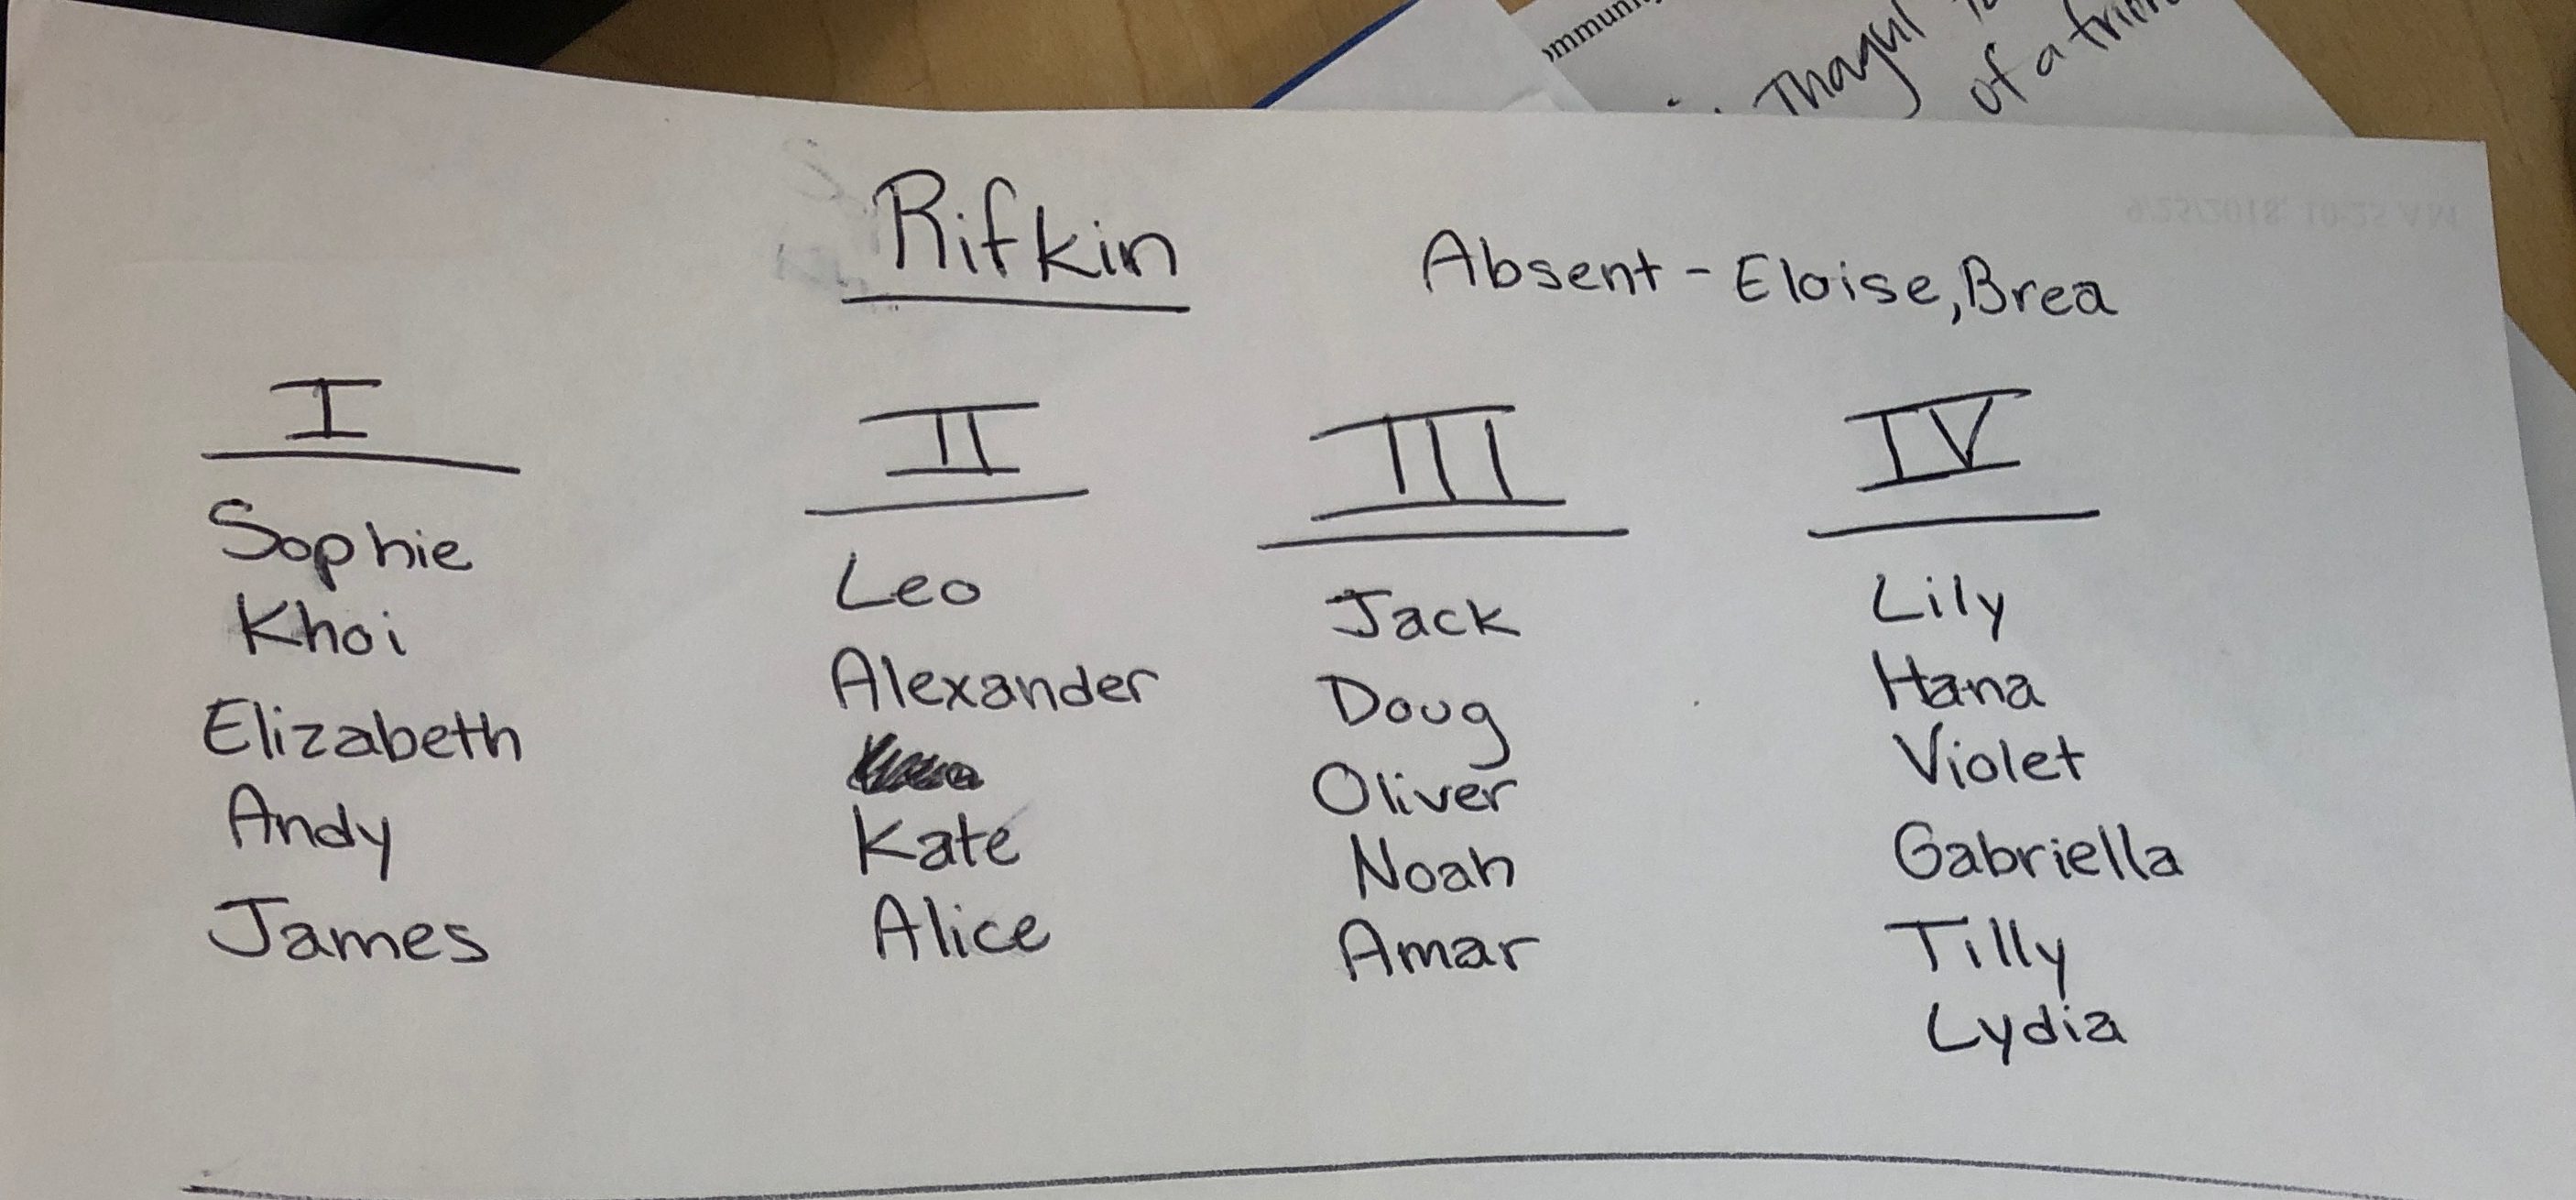 mmuni
Thagul
of a frien
Rifkin
Absent - Eloise, Brea
9/25/2018 10:25 AM
I
Sophie
Khoi
Elizabeth
Andy
James
II
Leo
Alexander
Kate
Alice
III
Jack
Doug
Oliver
Noah
Amar
IV
Lily
Hana
Violet
Gabriella
Tilly
Lydia